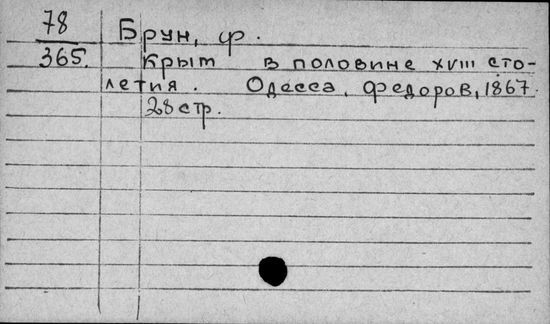 78 Брун, Ф.
365. Крым в половине XVIII сто-
летия. Одесса, Федоров, 1867.
28 стр.